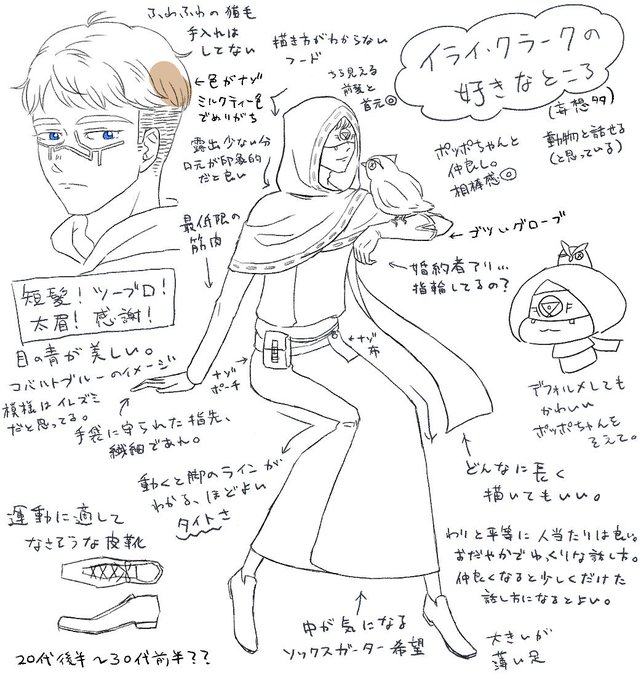 イライ・クラークの
好きなところ
(妄想多々)
ふわふわの猫毛
手入れは
してない
描き方がわからない
フード
ちら見える
前髪と
首元◎
←色がナゾ
ミルクティー色
でぬりがち
露出少ない分
口元が印象的
だと良い
最低限の
筋肉
ポッポちゃんと
仲良し。
相棒感◎
動物と話せる
(と思っている)
←ゴツいグローブ
←婚約者アリ…
指輪してるの?
短髪!ツーブロ!
太眉!感謝!
目の青が美しい。
コバルトブルーのイメージ
模様はイレズミ
だと思ってる。
手袋に守られた指先、
繊細であれ。
ナゾ
ポーチ
ナゾ
布
デフォルメしても
かわいい
ポッポちゃんを
そえて。
動くと脚のラインが
わかる、ほどよい
タイトさ
どんなに長く
描いてもいい。
運動に適して
なさそうな皮靴
わりと平等に人当たりは良い。
おだやかでゆっくりな話し方。
仲良くなると少しくだけた
話し方になるとよい。
中が気になる
ソックスガーター希望
大きいが
薄い足
20代後半〜30代前半??